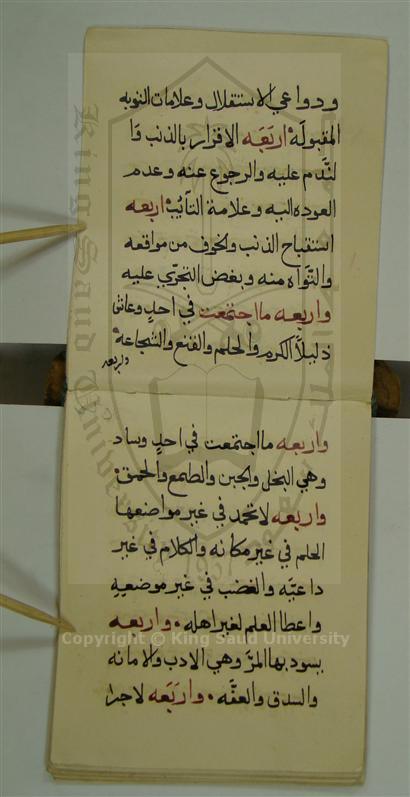 ودواعي الاستقلال وعلامات التوبه
المقبولة اربَعَه الاقرار بالذنب وَا
لنَّدم عليه والرجوع عنه وعدم
العوده اليه وعلامة التَّايُب اربعه
استقباح الذنب والخوف من مواقعه
والتَّواه منه وبغض التجرّي عليه
واربعه ما اجتمعت في احدٍ وعاش
ذليلًا الكرم والحلم والقنع والشجاعة
واربعه
واربعه ما اجتمعت في احدٍ وساد
وهي البخل والجبن والطمع والحمق
واربعه لا تحمد في غير مواضعها
الحلم في غير مكانه والكلام في غير
داعيَّه والغضب في غير موضعهِ
واعطا العلم لغير اهله واربعه
يسود بها المرَّ وهي الادب والامانه
والسدق والعفَّه واربَعَه لاجرا
King Saud University
Copyright © King Saud University